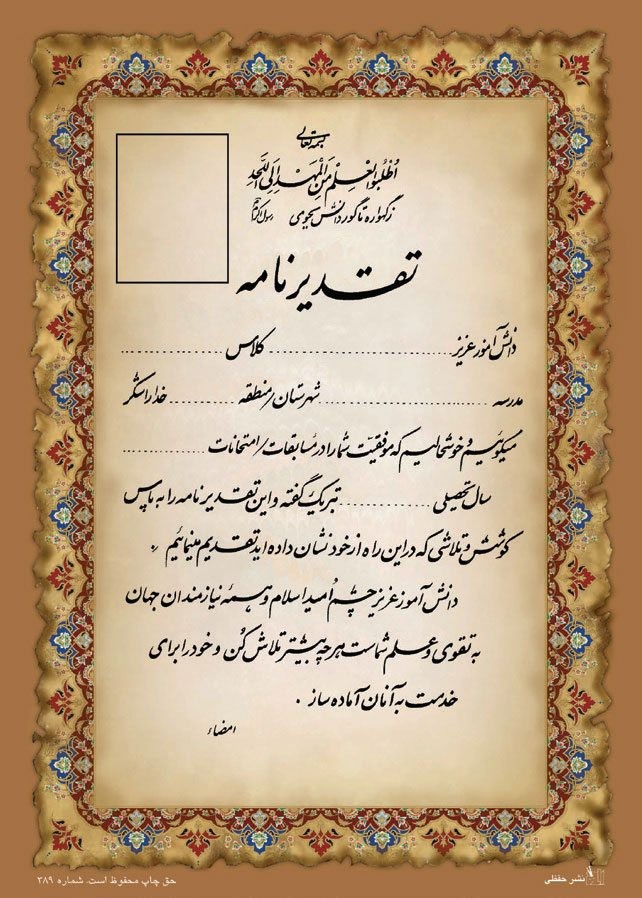 بسمه تعالی
اُطْلُبُوا الْعِلْمَ مِنَ الْمَهْدِ اِلَی اللَّحَدِ
زگهواره تا گور دانش بجوی رسول اکرم
تقدیرنامه
دانش آموز عزیز .................... کلاس ....................
مدرسه .................... شهرستان/منطقه .................... خدا را شکر
میگوئیم و خوشحالیم که موفقیت شما را در مسابقات/امتحانات ....................
سال تحصیلی .................... تبریک گفته و این تقدیرنامه را به پاس
کوشش و تلاشی که در این راه از خود نشان داده اید تقدیم مینمائیم
دانش آموز عزیز چشم اُمید اسلام و همهٔ نیازمندان جهان
به تقوی و علم شماست هر چه بیشتر تلاش کُن و خود را برای
خدمت به آنان آماده ساز .
امضاء
نشر حفظی
حق چاپ محفوظ است. شماره ۳۸۹